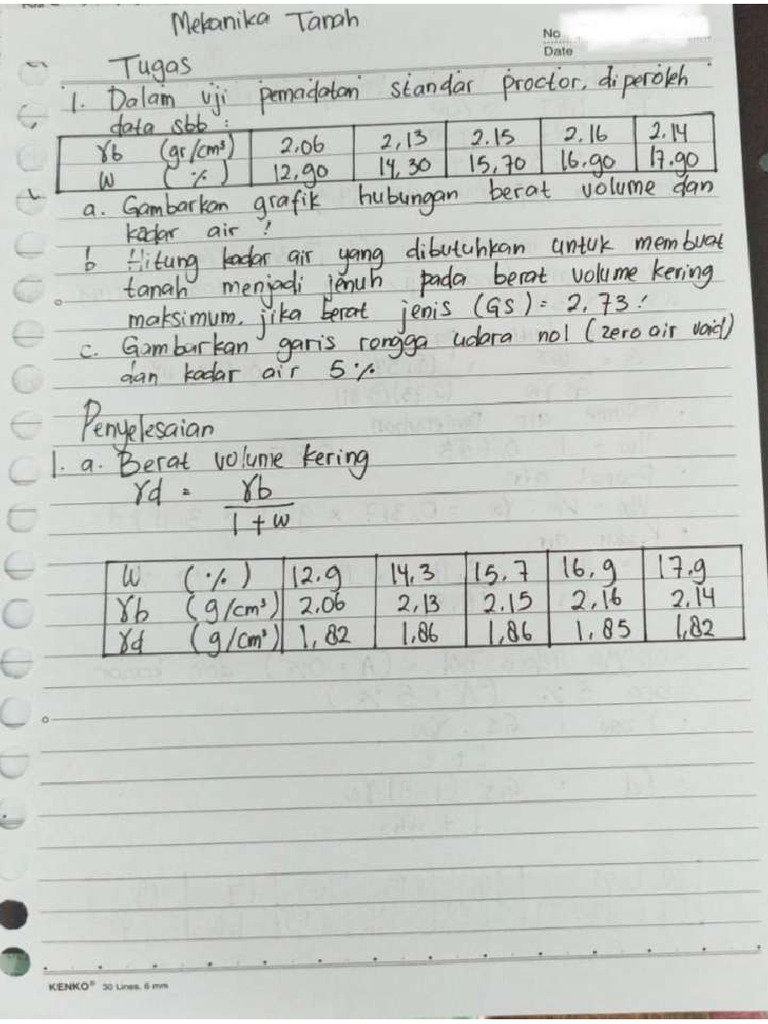 Mekanika Tanah
No
Date
Tugas
1. Dalam uji pemadatan standar proctor, diperoleh
data sbb :
γb (gr/cm³) 2.06 2,13 2.15 2.16 2.14
W (%) 12,90 14,30 15,70 16.90 17.90
a. Gambarkan grafik hubungan berat volume dan
kadar air !
b Hitung kadar air yang dibutuhkan untuk membuat
tanah menjadi jenuh pada berat volume kering
maksimum, jika berat jenis (GS) = 2,73 !
c. Gambarkan garis rongga udara nol (zero air void)
dan kadar air 5%
Penyelesaian
1. a. Berat volume kering
γd = γb
1 + w
W (%) 12.9 14,3 15,7 16,9 17.9
γb (g/cm³) 2,06 2,13 2.15 2,16 2,14
γd (g/cm³) 1,82 1,86 1,86 1,85 1,82
KENKO® 30 Lines, 6 mm